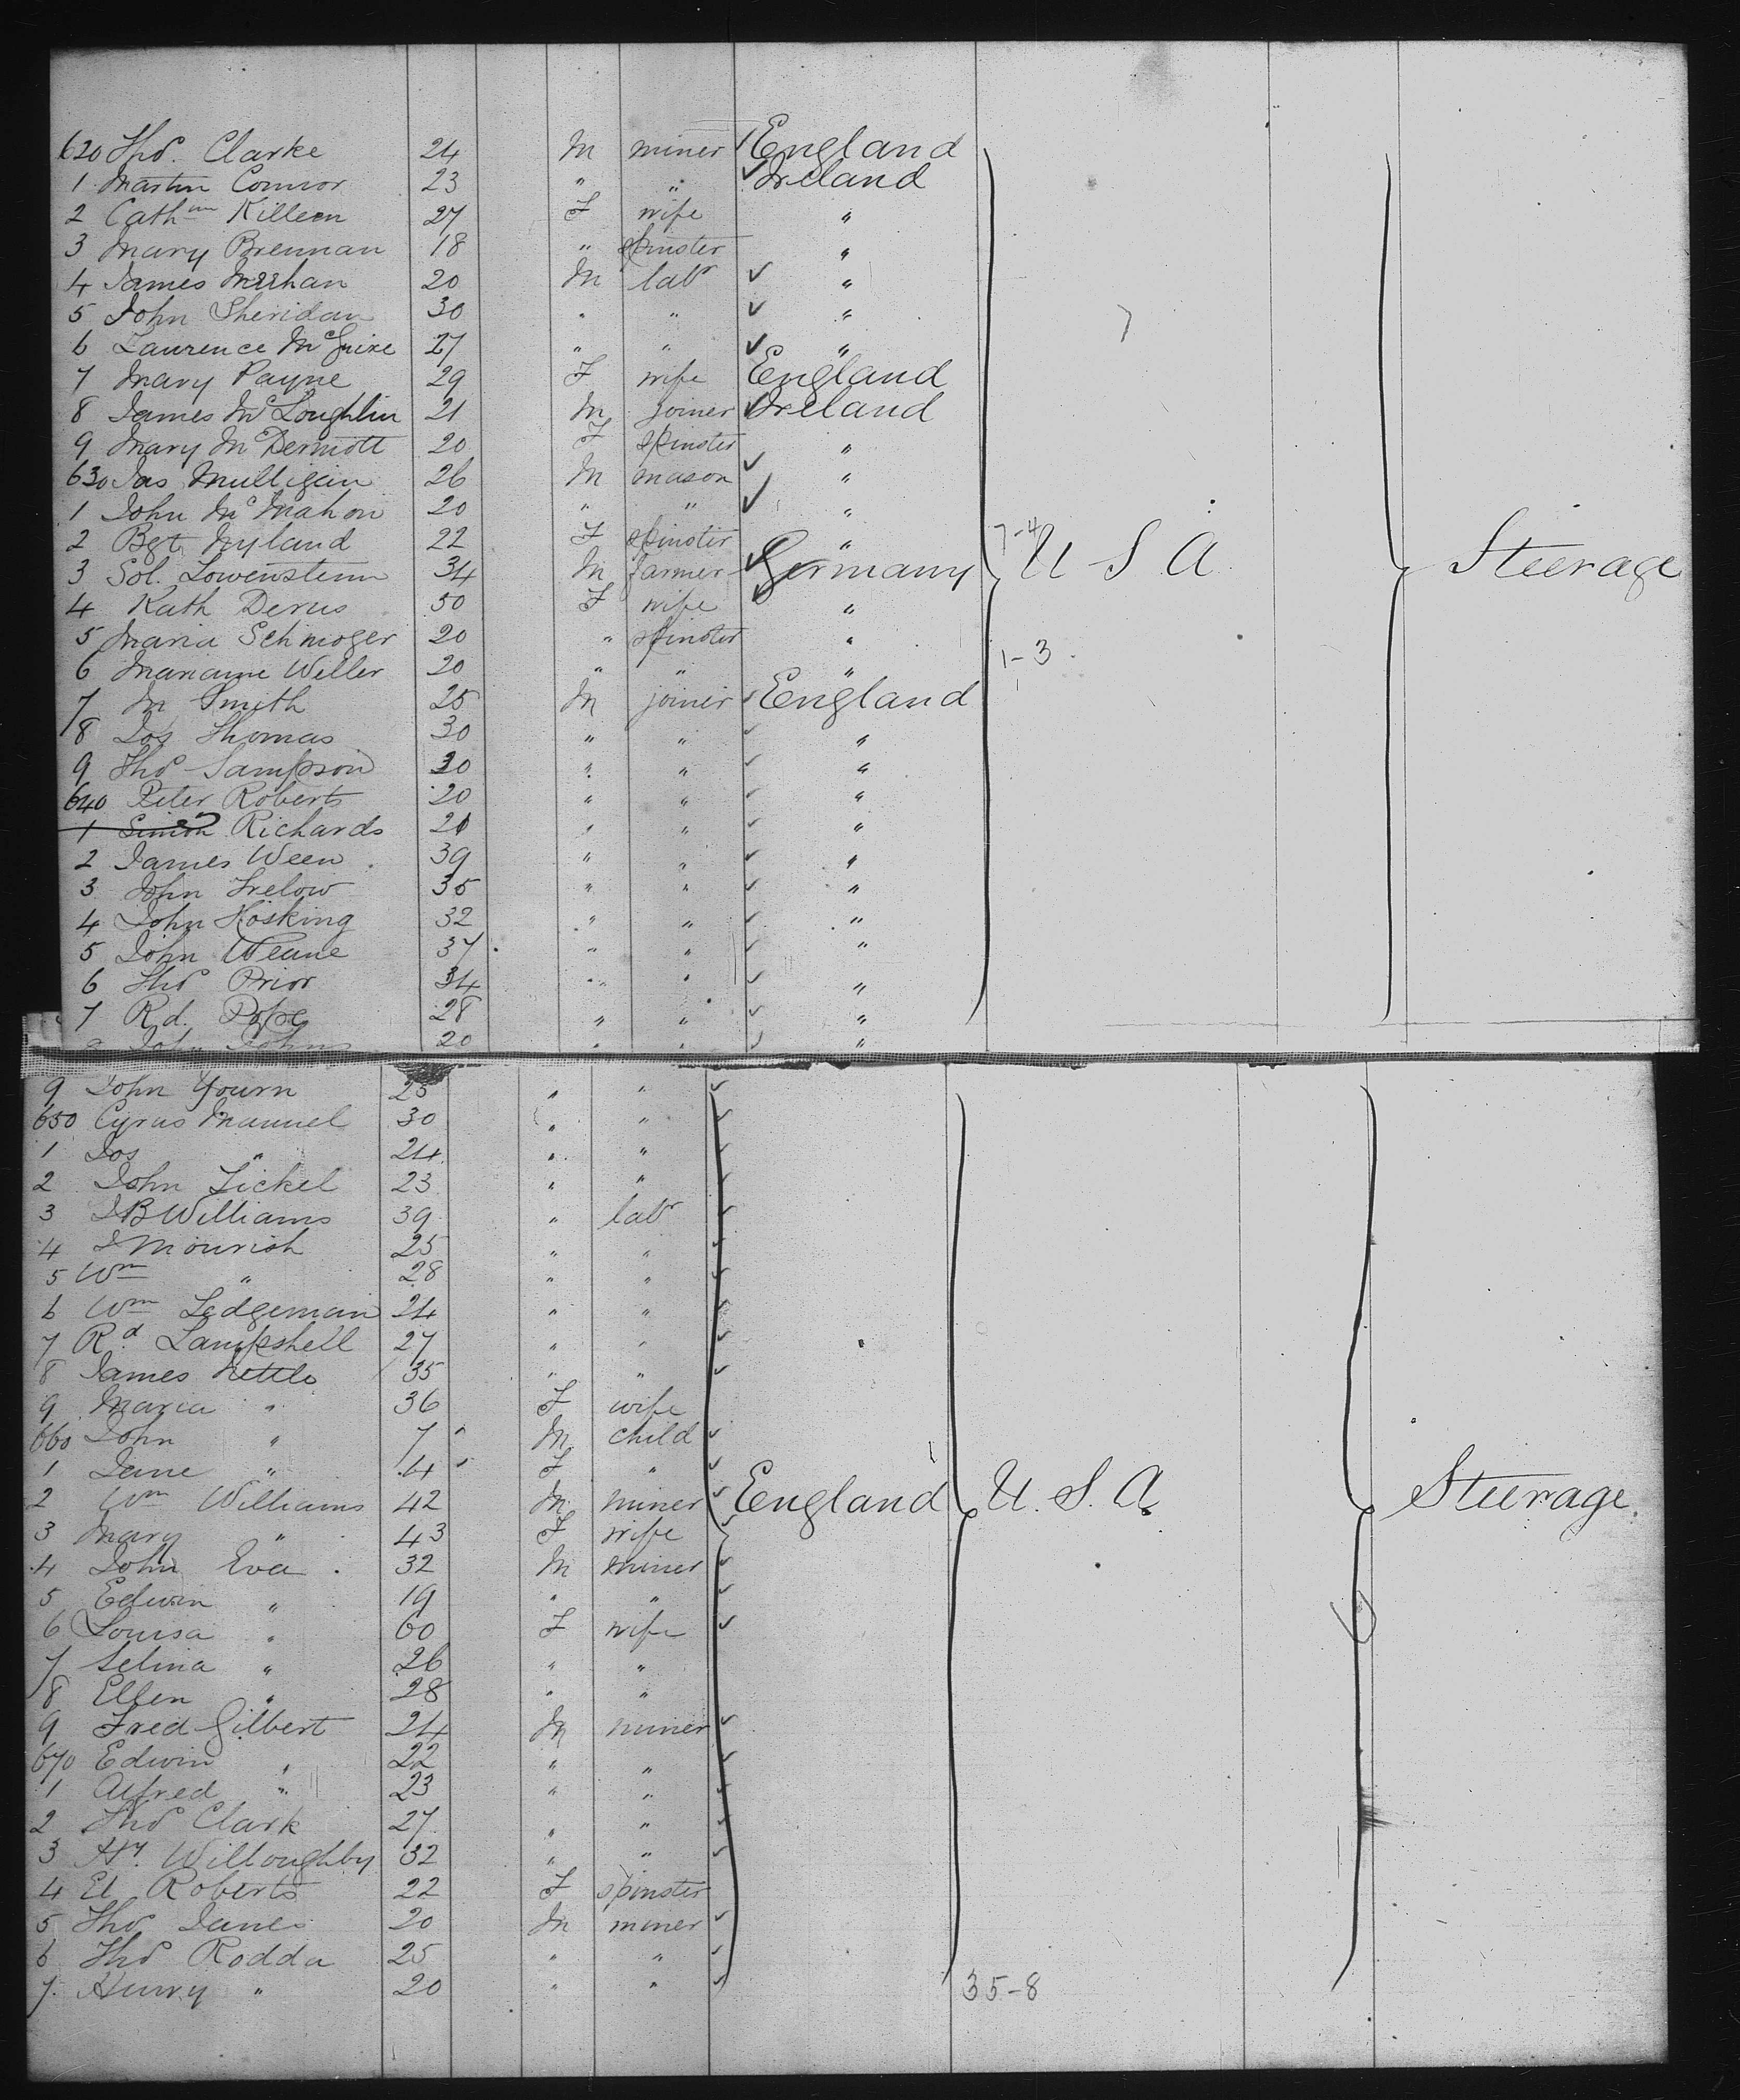 620 Thos. Clarke 24 M miner England
1 Martin Connor 23 " " Ireland
2 Cathne Killeen 27 F wife "
3 Mary Brennan 18 " spinster "
4 James Meehan 20 M labr "
5 John Sheridan 30 " " "
6 Laurence McGuire 27 " " "
7 Mary Payne 29 F wife England
8 James McLoughlin 21 M joiner Ireland
9 Mary McDermott 20 F spinster "
630 Jas Mulligan 26 M mason "
1 John McMahon 20 " " "
2 Bgt Nyland 22 F spinster "
3 Sol. Lowenstein 34 M farmer Germany 7-4 U S A Steerage
4 Kath Derus 50 F wife "
5 Maria Schmoger 20 " spinster " 1-3
6 Mariane Weller 20 " " "
7 M Smith 25 M joiner England
8 Jos Thomas 30 " " "
9 Thos Sampson 30 " " "
640 Peter Roberts 20 " " "
1 Simon Richards 20 " " "
2 James Ween 39 " " "
3 John Trelow 35 " " "
4 John Hosking 32 " " "
5 John Weane 37 " " "
6 Thos Prior 34 " " "
7 Rd. Pope 28 " " "
John Johns 20 " " "
9 John Yourn 25 " "
650 Cyrus Manuel 30 " "
1 Jos " 24 " "
2 John Tickel 23 " "
3 J B Williams 39 " labr
4 J Mourish 25 " "
5 Wm " 28 " "
6 Wm Ledgeman 24 " "
7 Rd. Lampshell 27 " "
8 James Nettle 35 " "
9 Maria " 36 F wife
660 John " 7 M child
1 Jane " 4 F "
2 Wm Williams 42 M miner England U. S. A. Steerage.
3 Mary " 43 F wife
4 John Eva 32 M miner
5 Edwin " 19 " "
6 Louisa " 60 F wife
7 Selina " 26 " "
8 Ellen " 28 " "
9 Fred Gilbert 24 M miner
670 Edwin " 22 " "
1 Alfred " 23 " "
2 Thos Clark 27 " "
3 Hy. Willoughby 32 " "
4 El Roberts 22 F spinster
5 Thos James 20 M miner
6 Thos Rodda 25 " "
7 Henry " 20 " " 35-8